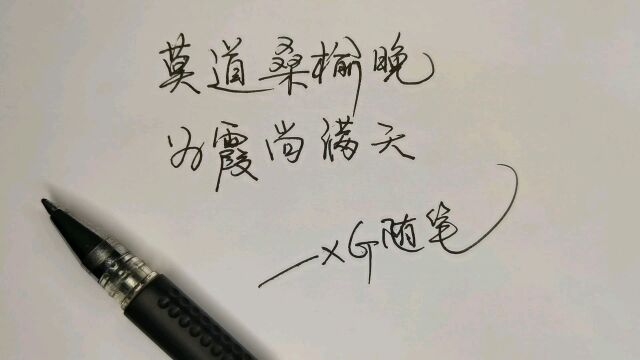 莫道桑榆晚
为霞尚满天
—XG随笔